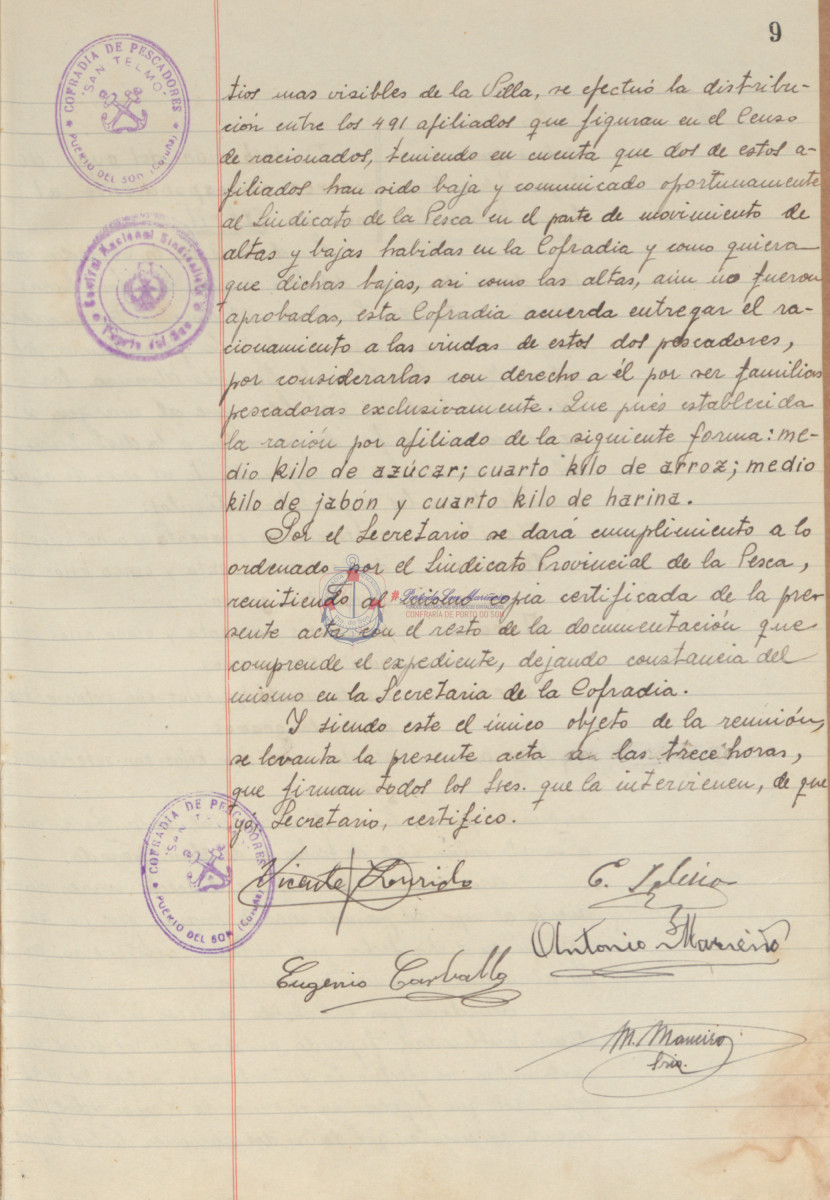 9
COFRADIA DE PESCADORES
"SAN TELMO"
PUERTO DEL SON (Coruña)
Central Nacional Sindicalista
Puerto del Son
tios mas visibles de la Villa, se efectuó la distribu-
ción entre los 491 afiliados que figuran en el Censo
de racionados, teniendo en cuenta que dos de estos a-
filiados han sido baja y comunicado oportunamente
al Sindicato de la Pesca en el parte de movimiento de
altas y bajas habidas en la Cofradia y como quiera
que dichas bajas, asi como las altas, aún no fueron
aprobadas, esta Cofradia acuerda entregar el ra-
cionamiento a las viudas de estos dos pescadores,
por considerarlas con derecho a él por ser familias
pescadoras exclusivamente. Que pués establecida
la ración por afiliado de la siguiente forma: me-
dio kilo de azúcar; cuarto kilo de arroz; medio
kilo de jabón y cuarto kilo de harina.
Por el Secretario se dará cumplimiento a lo
ordenado por el Sindicato Provincial de la Pesca,
remitiendo al copia certificada de la pre-
sente acta con el resto de la documentación que
comprende el expediente, dejando constancia del
mismo en la Secretaria de la Cofradia.
Y siendo este el único objeto de la reunión,
se levanta la presente acta a las trece horas,
que firman todos los Sres. que la intervienen, de que
yó, Secretario, certifico.
CONFRARÍA DE PORTO DO SON
COFRADIA DE PESCADORES
"SAN TELMO"
PUERTO DEL SON (Coruña)
Vicente Lourido
Antonio
Eugenio Carballo
M. Maneiro
Srio.